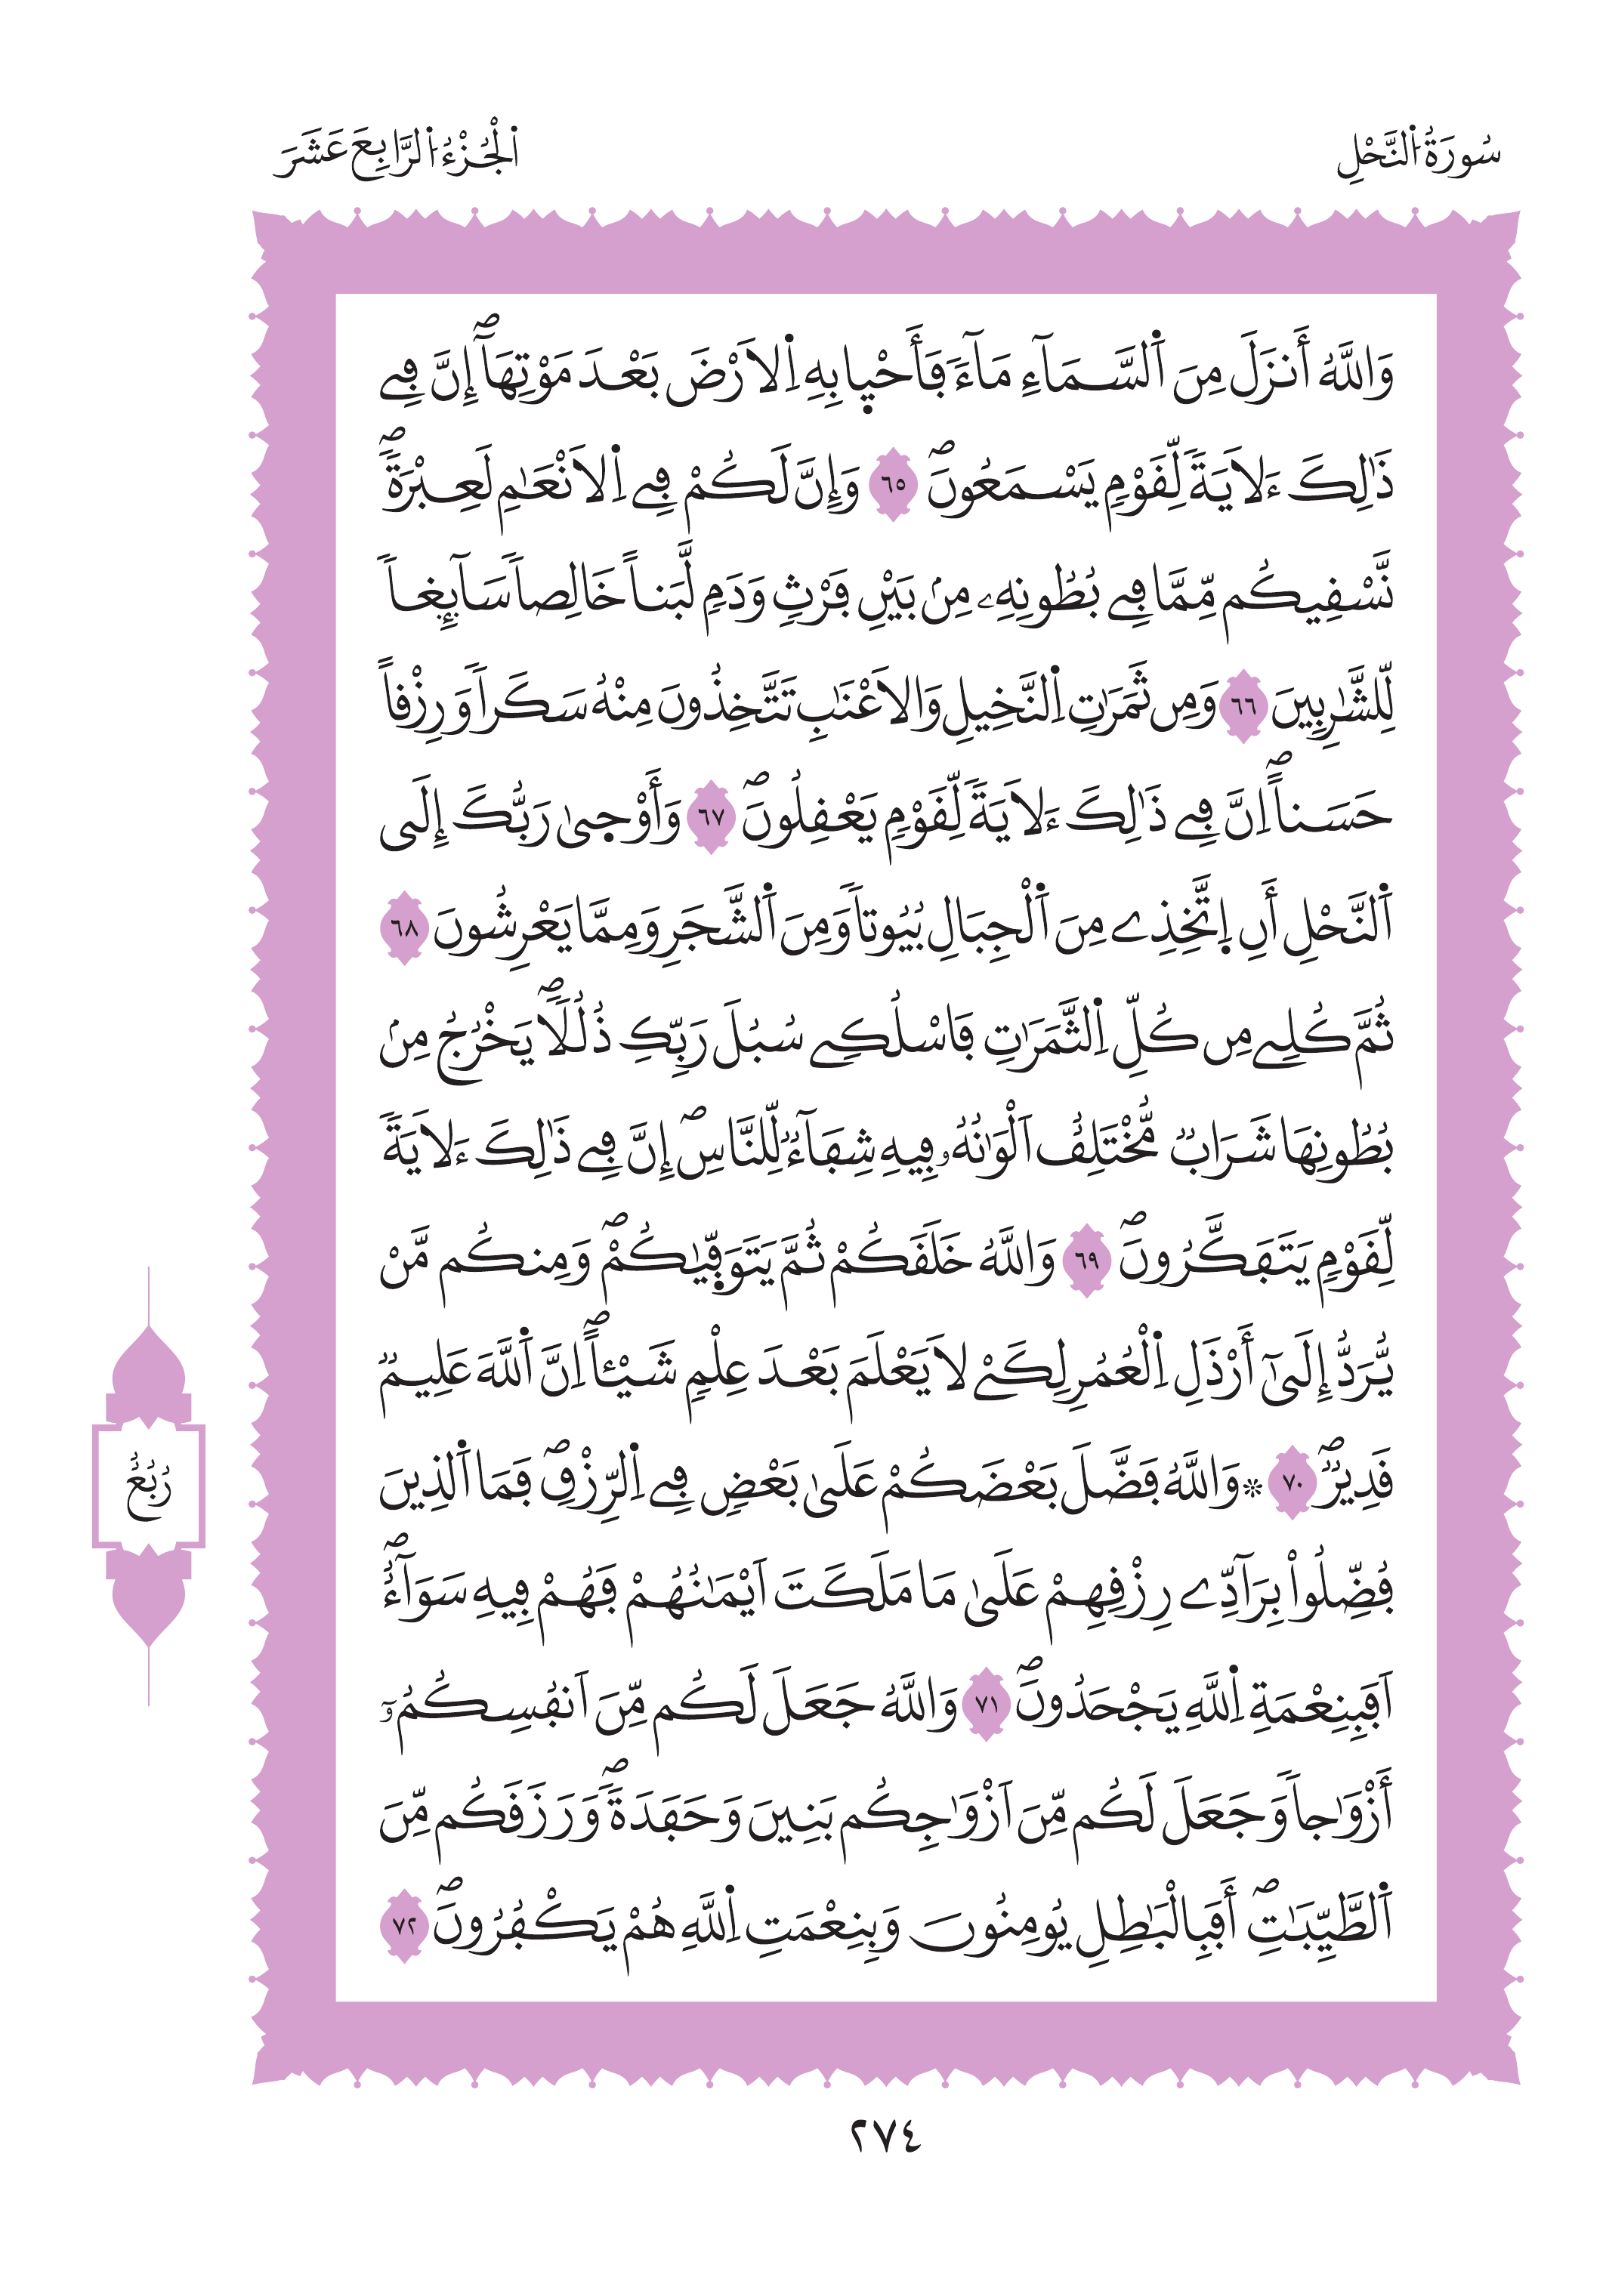 سُورَةُ اُ۬لنَّحْلِ
اَ۬لْجُزْءُ اُ۬لرَّابِعَ عَشَرَ
وَاللَّهُ أَنزَلَ مِنَ اَ۬لسَّمَآءِ مَآءٗ فَأَحْي۪ا بِهِ اِ۬لَارْضَ بَعْدَ مَوْتِهَآۖ إِنَّ فِے
ذَٰلِكَ ءَلَايَةٗ لِّقَوْمٖ يَسْمَعُونَۖ ٦٥ وَإِنَّ لَكُمْ فِے اِ۬لَانْعَٰمِ لَعِبْرَةٗۖ
نَّسْقِيكُم مِّمَّا فِے بُطُونِهِۦ مِنۢ بَيْنِ فَرْثٖ وَدَمٖ لَّبَناً خَالِصاٗ سَآئِغاٗ
لِّلشَّٰرِبِينَ ٦٦ وَمِن ثَمَرَٰتِ اِ۬لنَّخِيلِ وَالَاعْنَٰبِ تَتَّخِذُونَ مِنْهُ سَكَراٗ وَرِزْقاً
حَسَناًۖ اِنَّ فِے ذَٰلِكَ ءَلَايَةٗ لِّقَوْمٖ يَعْقِلُونَۖ ٦٧ وَأَوْح۪يٰ رَبُّكَ إِلَي
اَ۬لنَّحْلِ أَنِ اِ۪تَّخِذِے مِنَ اَ۬لْجِبَالِ بُيُوتاٗ وَمِنَ اَ۬لشَّجَرِ وَمِمَّا يَعْرِشُونَ ٦٨
ثُمَّ كُلِے مِن كُلِّ اِ۬لثَّمَرَٰتِ فَاسْلُكِے سُبُلَ رَبِّكِ ذُلُلاٗۖ يَخْرُجُ مِنۢ
بُطُونِهَا شَرَابٞ مُّخْتَلِفٌ اَلْوَٰنُهُۥ فِيهِ شِفَآءٞ لِّلنَّاسِۖ إِنَّ فِے ذَٰلِكَ ءَلَايَةٗ
لِّقَوْمٖ يَتَفَكَّرُونَۖ ٦٩ وَاللَّهُ خَلَقَكُمْ ثُمَّ يَتَوَفّ۪يٰكُمْۖ وَمِنكُم مَّنْ
يُّرَدُّ إِلَيٰٓ أَرْذَلِ اِ۬لْعُمُرِ لِكَےْ لَا يَعْلَمَ بَعْدَ عِلْمٖ شَيْـٔاًۖ اِنَّ اَ۬للَّهَ عَلِيمٞ
قَدِيرٞۖ ٧٠ ۞ وَاللَّهُ فَضَّلَ بَعْضَكُمْ عَلَيٰ بَعْضٖ فِے اِ۬لرِّزْقِۖ فَمَا اَ۬لذِينَ
فُضِّلُواْ بِرَآدِّے رِزْقِهِمْ عَلَيٰ مَا مَلَكَتَ اَيْمَٰنُهُمْ فَهُمْ فِيهِ سَوَآءٌۖ
اَفَبِنِعْمَةِ اِ۬للَّهِ يَجْحَدُونَۖ ٧١ وَاللَّهُ جَعَلَ لَكُم مِّنَ اَنفُسِكُمُۥٓ
أَزْوَٰجاٗ وَجَعَلَ لَكُم مِّنَ اَزْوَٰجِكُم بَنِينَ وَحَفَدَةٗۖ وَرَزَقَكُم مِّنَ
اَ۬لطَّيِّبَٰتِۖ أَفَبِالْبَٰطِلِ يُومِنُونَ وَبِنِعْمَتِ اِ۬للَّهِ هُمْ يَكْفُرُونَۖ ٧٢
رُبُعُ
٢٧٤